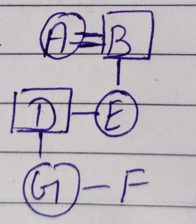 A = B
D - E
G - F